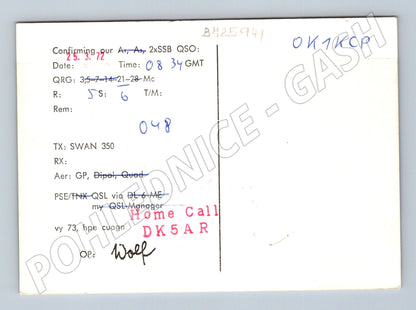 BM25941
OK1KCP
Confirming our A1, A3, 2xSSB QSO:
25. 3. 72
Date: Time: 08 34 GMT
QRG: 3,5-7-14-21-28-Mc
R: 5 S: 6 T/M:
Rem:
048
TX: SWAN 350
RX:
Aer: GP, Dipol, Quad
PSE/TNX QSL via DL 6 ME
my QSL-Manager
Home Call
DK5AR
vy 73, hpe cuagn
OP: Wolf
POHLEDNICE - GASH